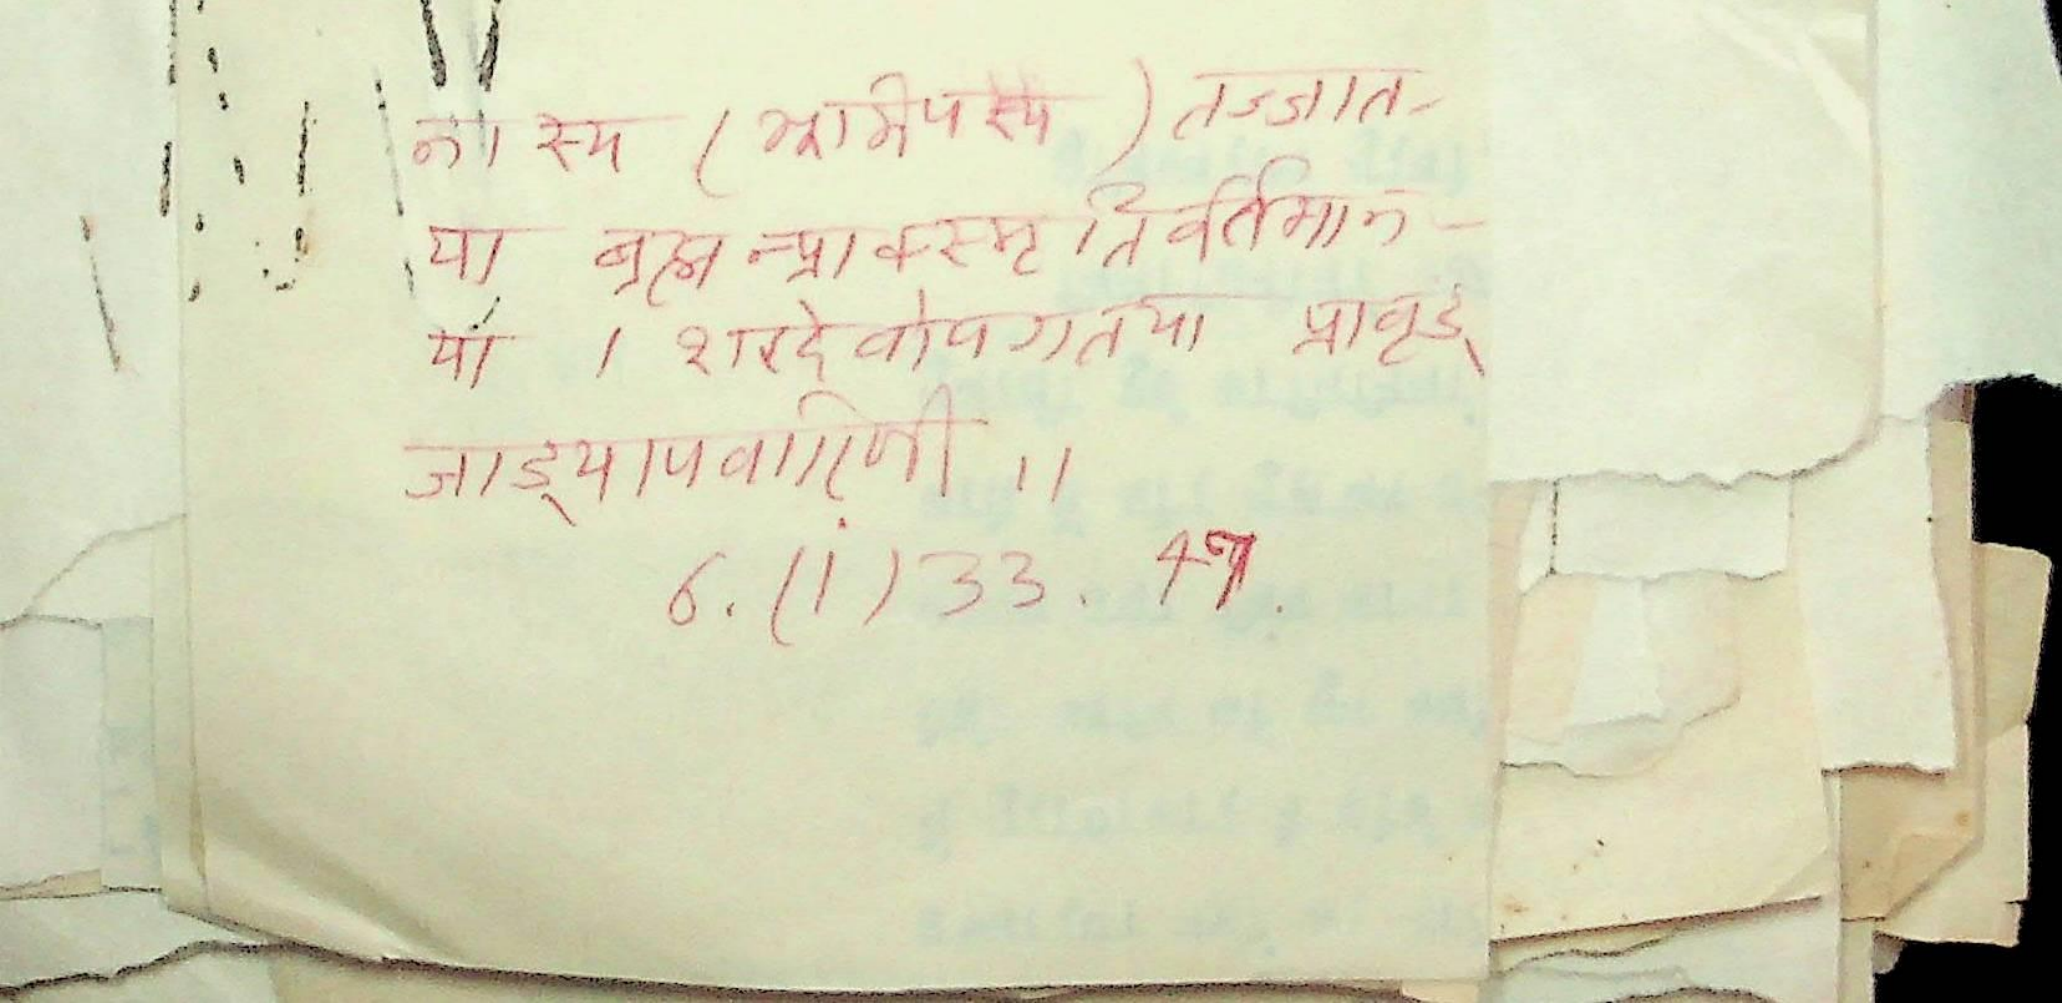 नास्य (भ्रामेपस्य) तज्जात-
या ब्रह्मन्प्राक्स्मृतिर्वर्तमान-
या । शरदेवोपगतया प्रावृड्
जाड्यापवारिणी ॥
6. (i) 33. 47.